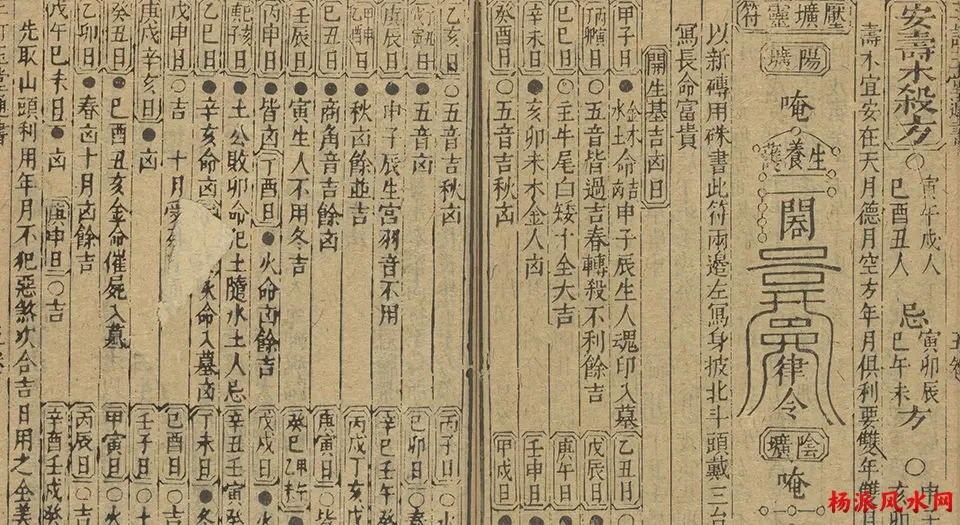 安壽木殺方
寅午戌人
巳酉丑人
忌
寅卯辰
巳午未
方
壽不宜安在天月德月空方年月俱利要雙年雙
壓壙靈符
陽壙
唵
養生
律令
陰壙
唵
以新磚用硃書此符兩邊左寫身披北斗頭戴三台
寫長命富貴
開生基吉凶日
甲子日●金木命吉申子辰生人魂印入墓 乙丑日
丙寅丁卯日○五音皆過吉春轉殺不利餘吉 戊辰日
己巳日○壬牛尾白矮子全大吉 庚午日
辛未日●亥卯未木金人凶 壬申日
癸酉日○五音吉秋凶 甲戌日
乙亥日○五音吉秋凶 丙子日
●五音凶 己卯日
庚辰日●申子辰生宮羽音不用 辛巳壬午
●秋凶餘並吉 丙戌丁亥
己丑日●商角音吉餘凶 庚寅日
辛卯日●寅生人不用冬吉 癸巳甲午
丙申日●皆凶 丁酉日●火命凶餘吉 戊戌日
●土公敗卯命犯土隨水土人忌 辛丑壬寅
●辛亥命凶 火命入墓凶 丁未日
戊申日○吉 己酉日
十月
庚戌辛亥日●凶 壬子日
癸丑日●巳酉丑亥金命催屍入墓 甲寅日
乙卯日●春凶十月凶餘吉 丙辰日
戊午己未日●凶 庚申日○吉 辛酉壬戌癸
先取山頭利用年月不犯惡煞次合吉日用之全美
杨派风水网